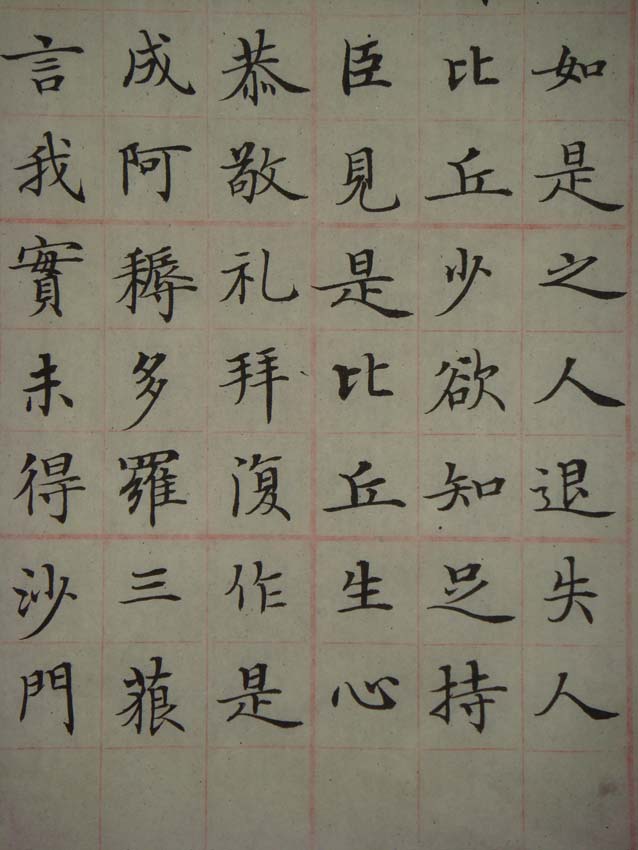 如是之人退失人
比丘少欲知足持
臣見是比丘生心
恭敬礼拜復作是
成阿耨多羅三藐
言我實未得沙門